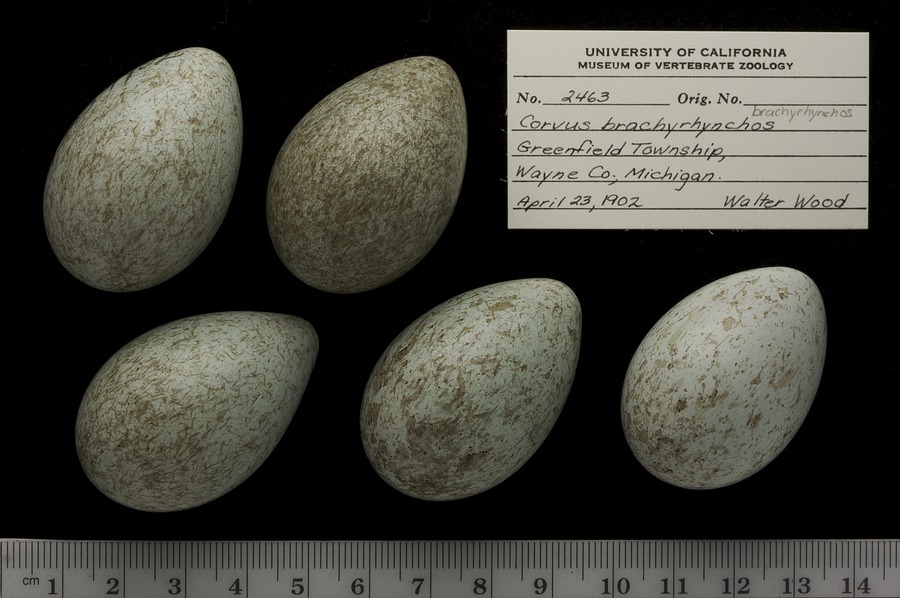 UNIVERSITY OF CALIFORNIA
MUSEUM OF VERTEBRATE ZOOLOGY
No. 2463 Orig. No.
brachyrhynchos
Corvus brachyrhynchos
Greenfield Township,
Wayne Co., Michigan.
April 23, 1902 Walter Wood
cm 1 2 3 4 5 6 7 8 9 10 11 12 13 14